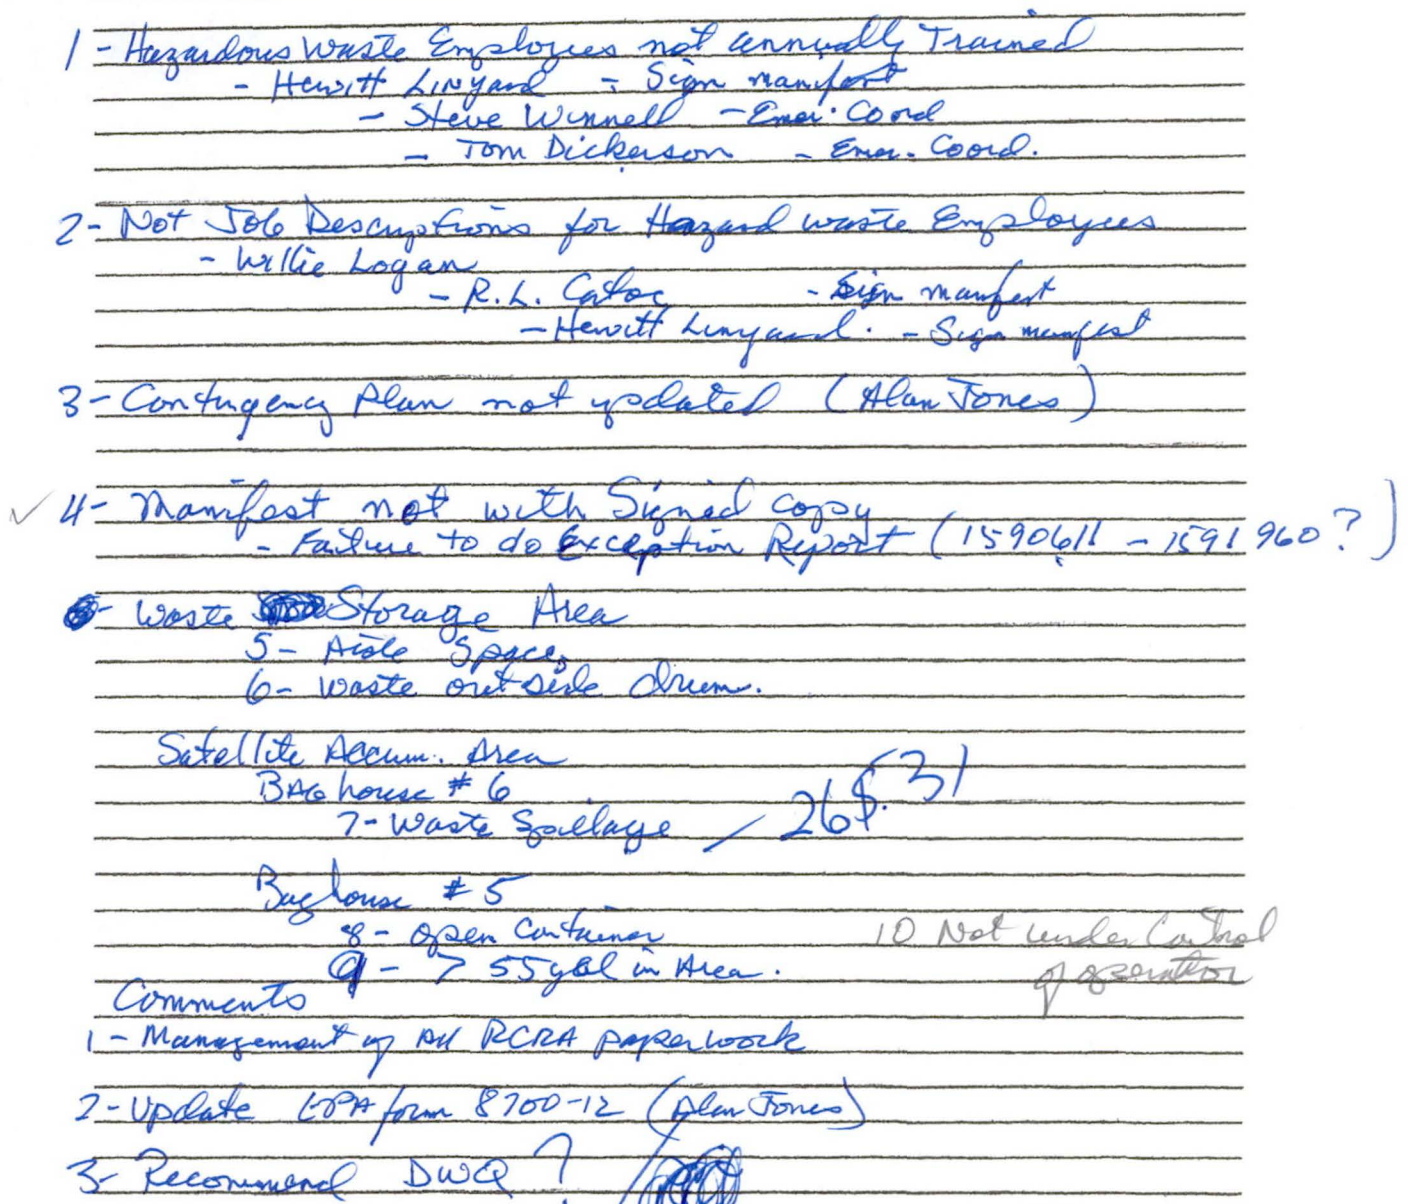 1 - Hazardous Waste Employees not annually Trained
- Hewitt Linyard - Sign manifest
- Steve Winnell - Emer. Coord
- Tom Dickerson - Emer. Coord.
2 - Not Job Descriptions for Hazard waste Employees
- Willie Logan
- R.L. - Sign manifest
- Hewitt Linyard. - Sign manifest
3 - Contingency Plan not updated (Alan Jones)
✓ 4 - Manifest not with Signed copy
- Failure to do Exception Report (1590611 - 1591960?)
- Waste Storage Area
5 - Aisle Space
6 - Waste outside drum.
Satellite Accum. Area
BAGhouse # 6
7 - Waste Spillage / 31
Baghouse # 5
8 - open Container
9 - > 55 gal in Area.
10 Not under Control
of operator
Comments
1 - Management of All RCRA paperwork
2 - Update EPA form 8700-12 (Alan Jones)
3 - Recommend DWQ ?